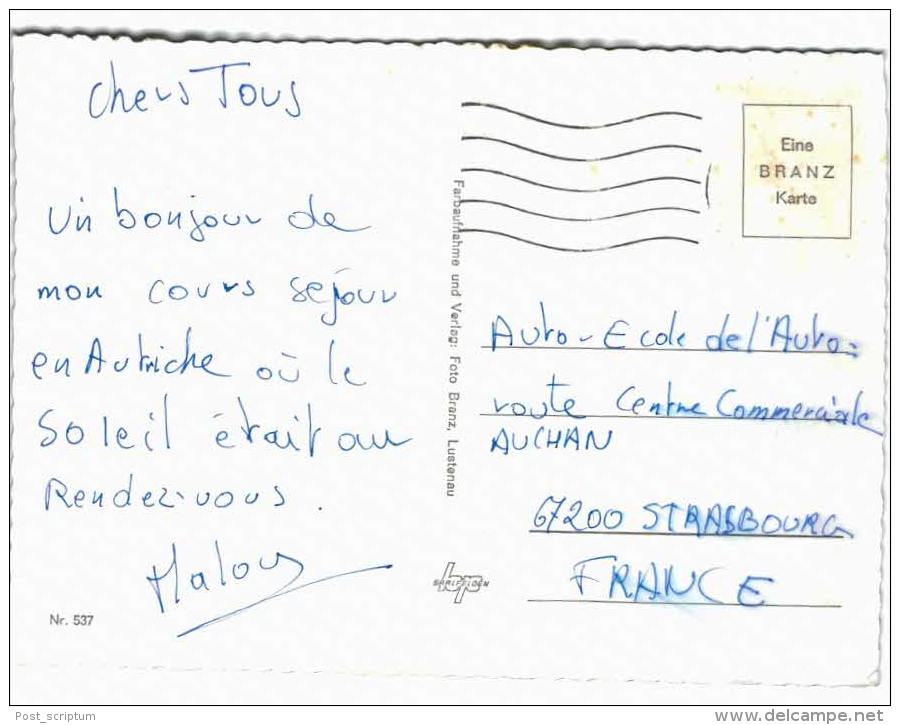 Chers Tous
Un bonjour de
mon cours séjour
en Autriche où le
Soleil était au
Rendez-vous.
Malou
Nr. 537
Farbaufnahme und Verlag: Foto Branz, Lustenau
Eine
BRANZ
Karte
Auto-Ecole de l'Auto=
route Centre Commerciale
AUCHAN
67200 STRASBOURG
FRANCE
Post_scriptum
www.delcampe.net